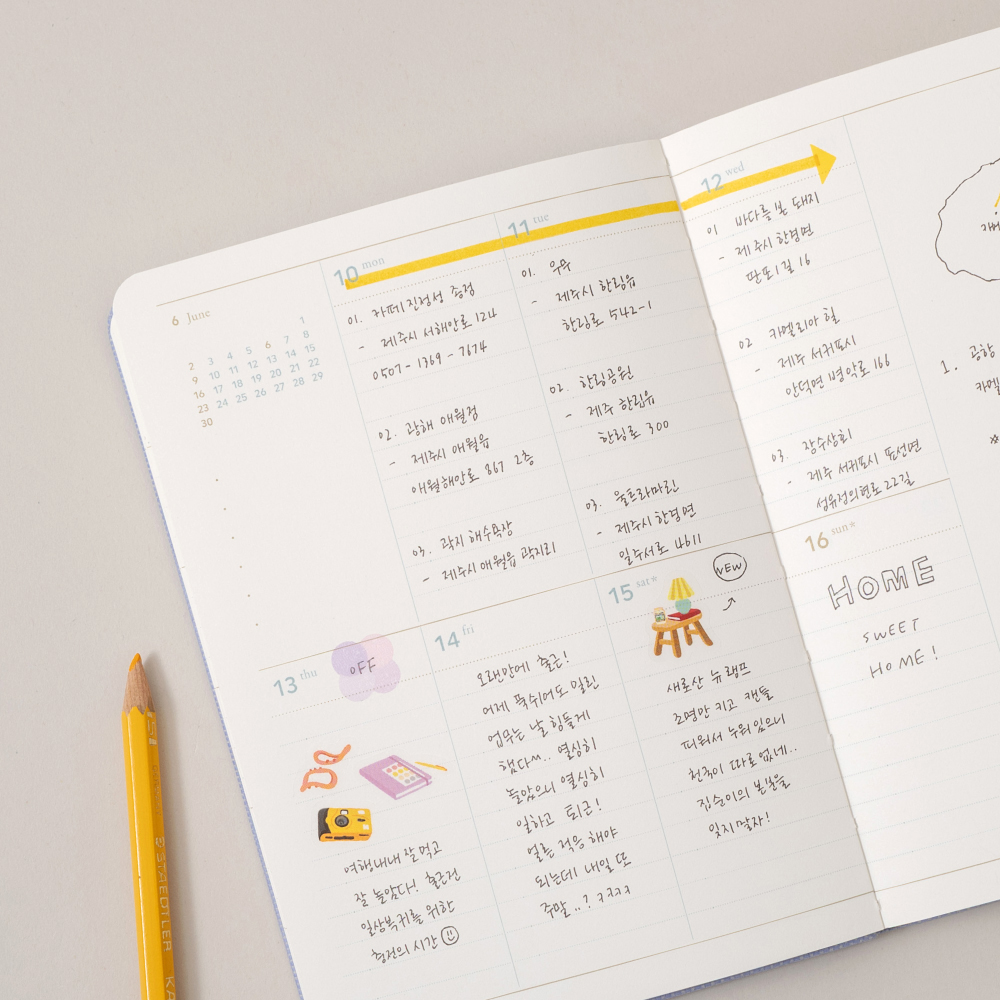 6 June
1
2 3 4 5 6 7 8
9 10 11 12 13 14 15
16 17 18 19 20 21 22
23 24 25 26 27 28 29
30
10 mon
01. 카페 진정성 종점
- 제주시 서해안로 124
0507-1369-7674
02. 광해 애월점
- 제주시 애월읍
애월해안로 867 2층
03. 곽지 해수욕장
- 제주시 애월읍 곽지리
11 tue
01. 우무
- 제주시 한림읍
한림로 542-1
02. 한림공원
- 제주 한림읍
한림로 300
03. 울트라마린
- 제주시 한경면
일주서로 4611
12 wed
01 바다를 본 돼지
- 제주시 한경면
판포1길 16
02 카멜리아 힐
- 제주 서귀포시
안덕면 병악로 166
03. 장수상회
- 제주 서귀포시 표선면
성읍정의현로 22길
13 thu
OFF
여행내내 잘 먹고
잘 놀았다! 출근전
일상복귀를 위한
충전의 시간
14 fri
오랜만에 출근!
어제 푹 쉬어도 밀린
업무는 날 힘들게
했다~.. 열심히
놀았으니 열심히
일하고 퇴근!
얼른 적응 해야
되는데 내일 또
주말..? ㅋㅋㅋㅋ
15 sat*
NEW
새로산 뉴 램프
조명만 키고 캔들
피워서 누워있으니
천국이 따로 없네..
집순이의 본분을
잊지말자!
16 sun*
HOME
SWEET
HOME!
1. 공항
카멜
STAEDTLER